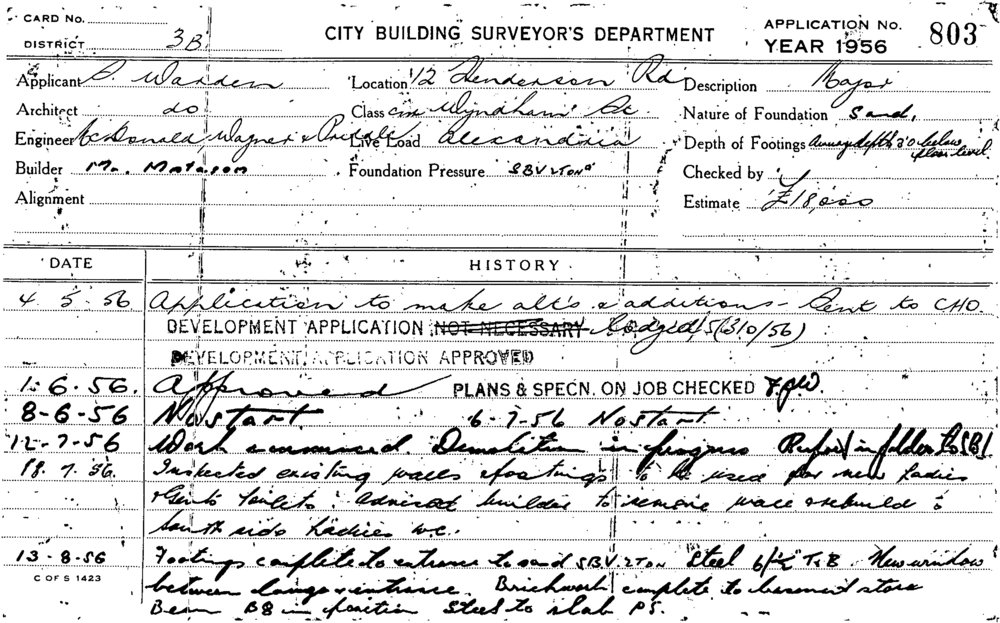 CARD No.
DISTRICT 3B.
CITY BUILDING SURVEYOR'S DEPARTMENT
APPLICATION No. 803
YEAR 1956
Applicant P. Warden
Location 12 Henderson Rd
Description Major
Architect do
Class c/m Wyndham St
Nature of Foundation Sand,
Engineer McDonald, Wagner & Priddle
Live Load Alexandria
Depth of Footings Average depth 2'0 below floor level.
Builder Mr.
Foundation Pressure SBV 2TON
Checked by
Alignment
Estimate £18,000
DATE
HISTORY
4. 5. 56 Application to make alt's & additions - Sent to CHO.
DEVELOPMENT APPLICATION NOT NECESSARY Lodged, 5(310/56)
DEVELOPMENT APPLICATION APPROVED
1. 6. 56. Approved PLANS & SPECN. ON JOB CHECKED
8-6-56 No start. 6-7-56 No start.
12-7-56 Work commenced. Demolition in progress Report in folder to SBI.
18. 7. 56. Inspected existing walls & footings to be used for new Ladies
& Gents toilets. Advised builder to remove wall & rebuild
South side Ladies w.c.
13-8-56 Footings complete to entrance to sand SBV. 2TON Steel 6/½" T&B. New window
between lounge & entrance. Brickwork complete to basement store
Beam B8 in position Steel to slab
C OF S 1423